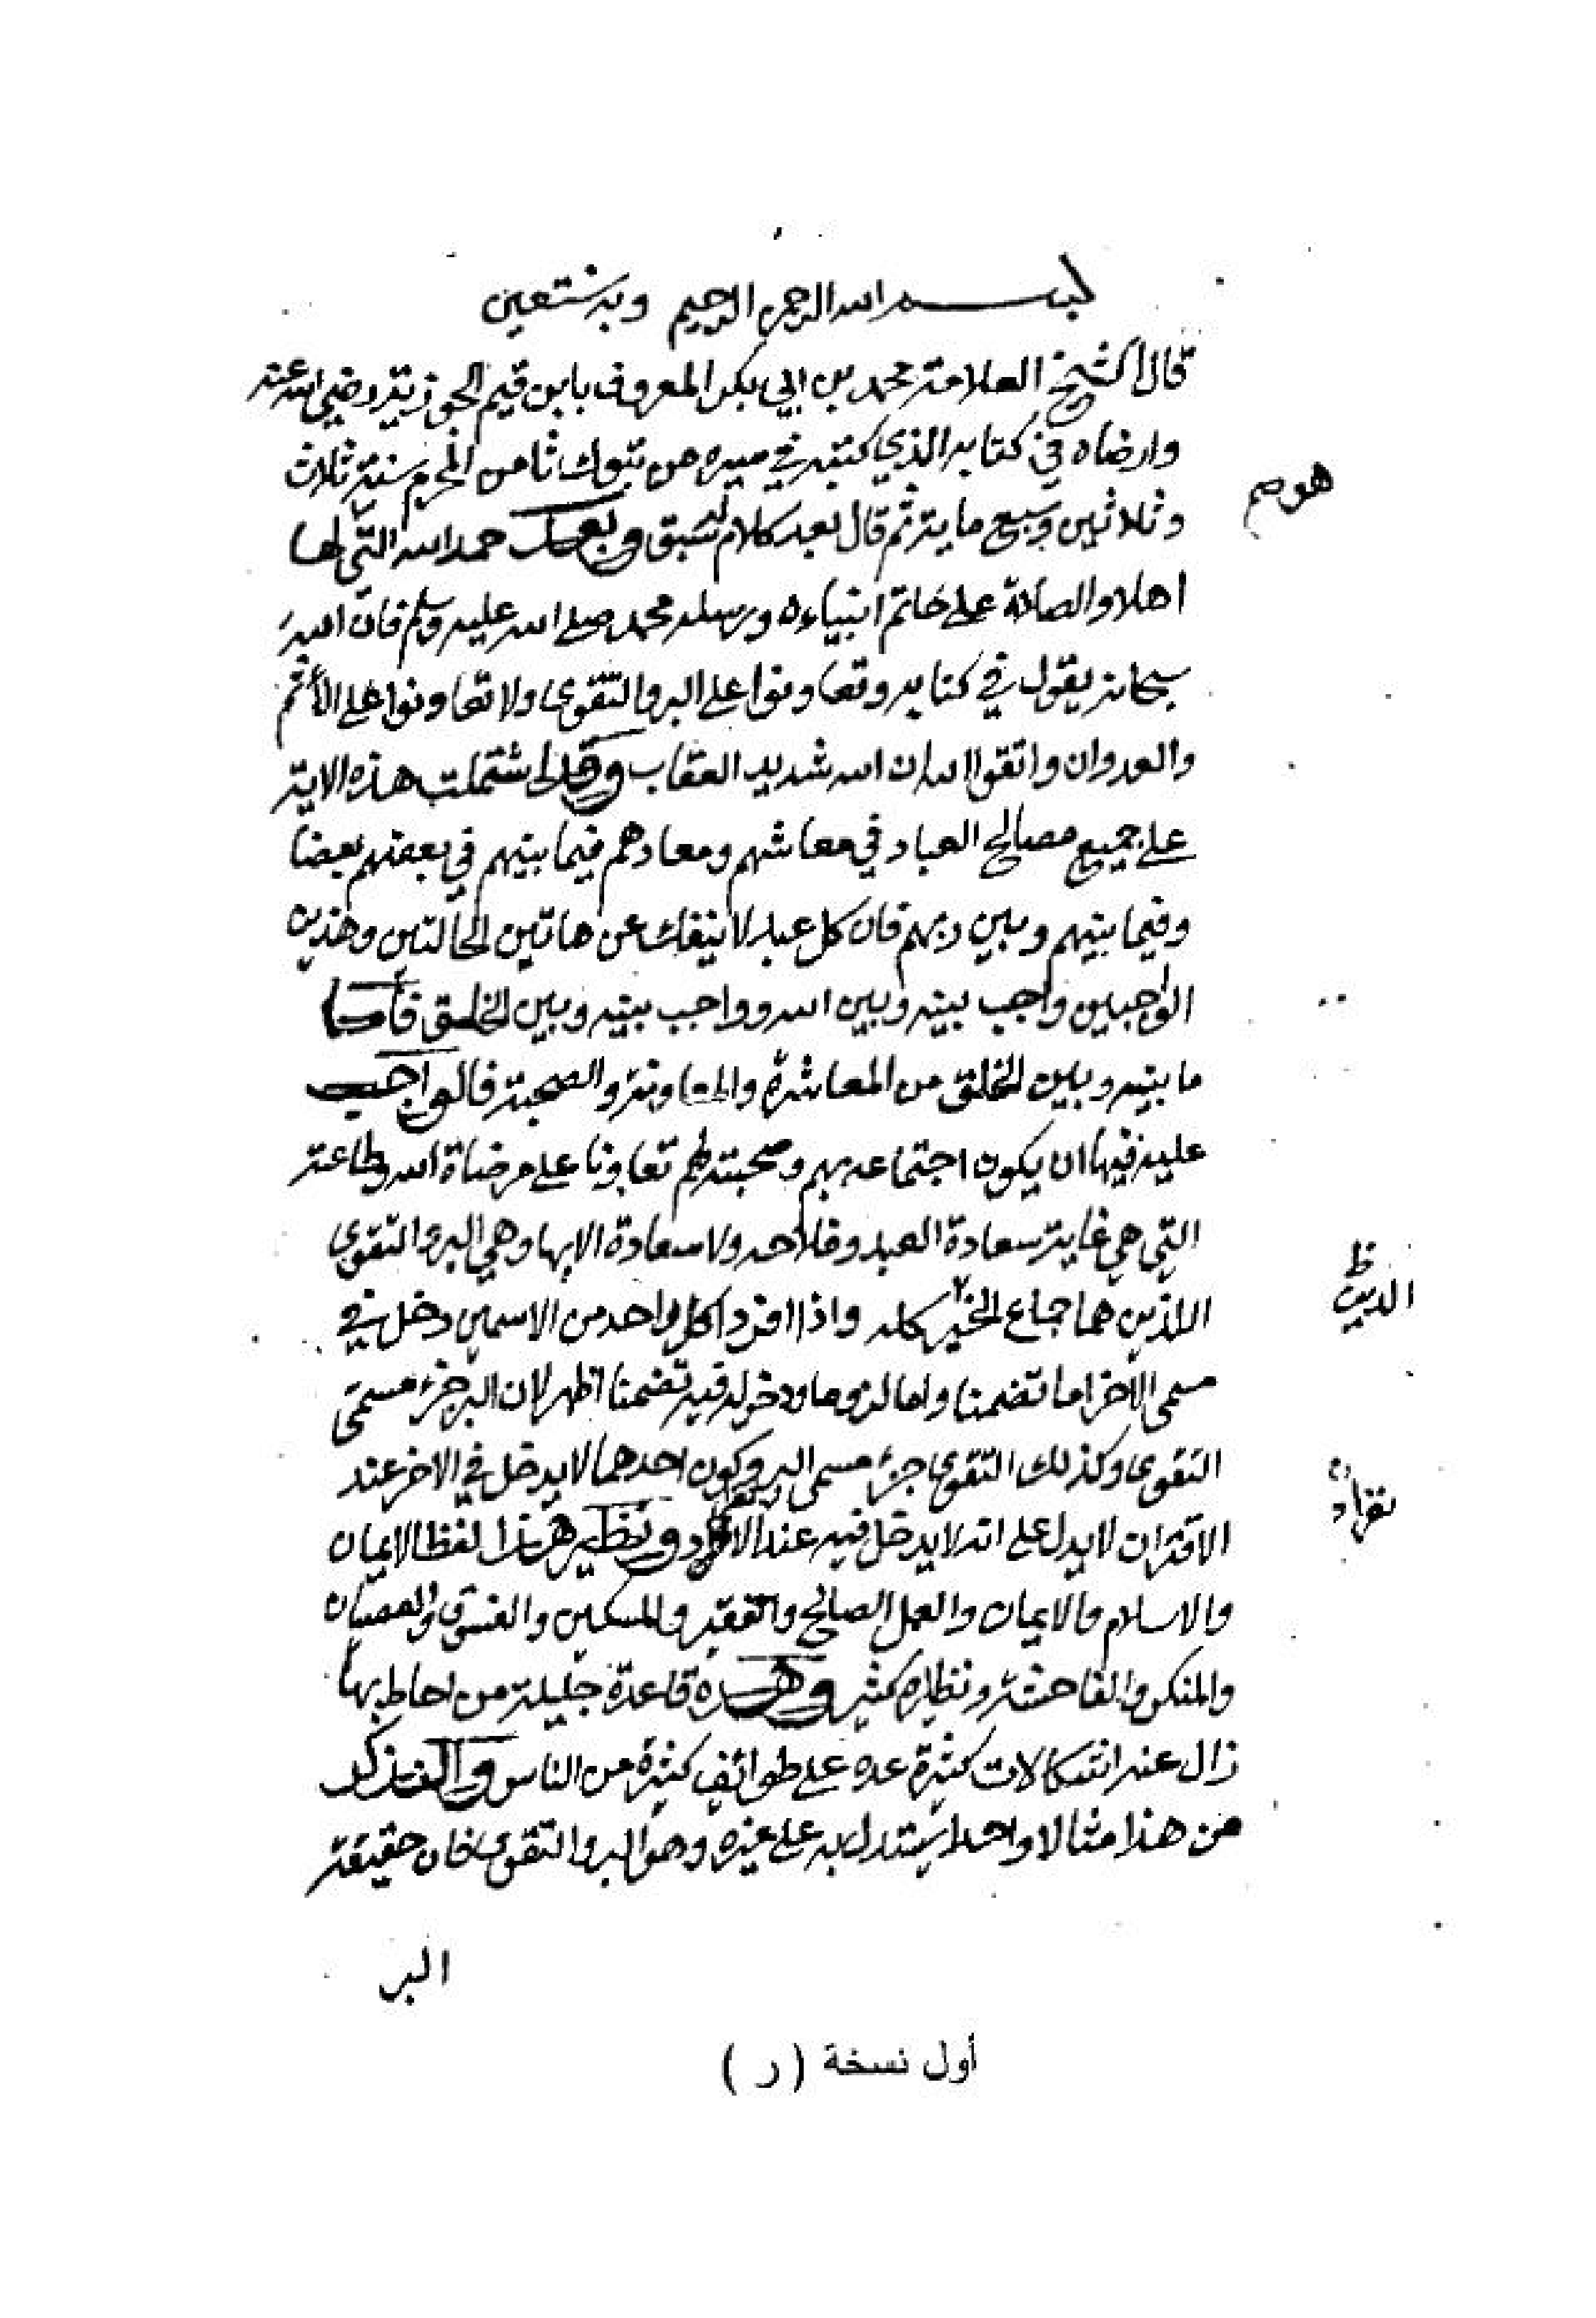 بسم الله الرحمن الرحيم وبه نستعين
قال الشيخ العلامة محمد بن ابي بكر المعروف بابن قيم الجوزية رضي الله عنه
وارضاه في كتابه الذي كتبه في مسيره من تبوك ثامن المحرم سنة ثلاث
وثلاثين وسبع ماية ثم قال بعد كلام له سبق وبعد حمد الله التي لها
هو صح
اهلا والصلاة على خاتم انبياءه ورسله محمد صلى الله عليه وسلم فان الله
سبحانه يقول في كتابه وتعاونوا على البر والتقوى ولا تعاونوا على الأثم
والعدوان واتقوا الله ان الله شديد العقاب وقد اشتملت هذه الاية
على جميع مصالح العباد في معاشهم ومعادهم فيما بينهم في بعضهم بعضا
وفيما بينهم وبين ربهم فان كل عبد لا ينفك عن هاتين الحالتين وهذين
الواجبين واجب بينه وبين الله وواجب بينه وبين الخلق فأما
ما بينه وبين الخلق من المعاشرة والمعاونة والصحبة فالواجب
عليه فيها ان يكون اجتماعه بهم وصحبته لهم تعاونا على مرضاة الله وطاعته
التي هي غاية سعادة العبد وفلاحه ولا سعادة الا بها وهي البر والتقوى
اللذين هما جماع الخير كله واذا افرد كل واحد من الاسمين دخل في
ظ
الدين
مسمى الآخر اما تضمنا واما لزوما ودخوله فيه تضمنا اظهر لان البر جزء مسمى
التقوى وكذلك التقوى جزء مسمى البر وكون احدهما لا يدخل في الاخر عند
الاقتران لا يدل على انه لا يدخل فيه عند الانفراد ونظير هذا لفظ الايمان
نفراد
والاسلام والايمان والعمل الصالح والفقير والمسكين والفسوق والعصيان
والمنكر والفاحشة ونظايره كثير وهذه قاعدة جليلة من احاط بها
زال عنه اشكالات كثيرة عده على طوائف كثيرة من الناس ولنذكر
من هذا مثالا واحدا يستدل به على غيره وهو البر والتقوى فان حقيقة
البر
أول نسخة ( ر )